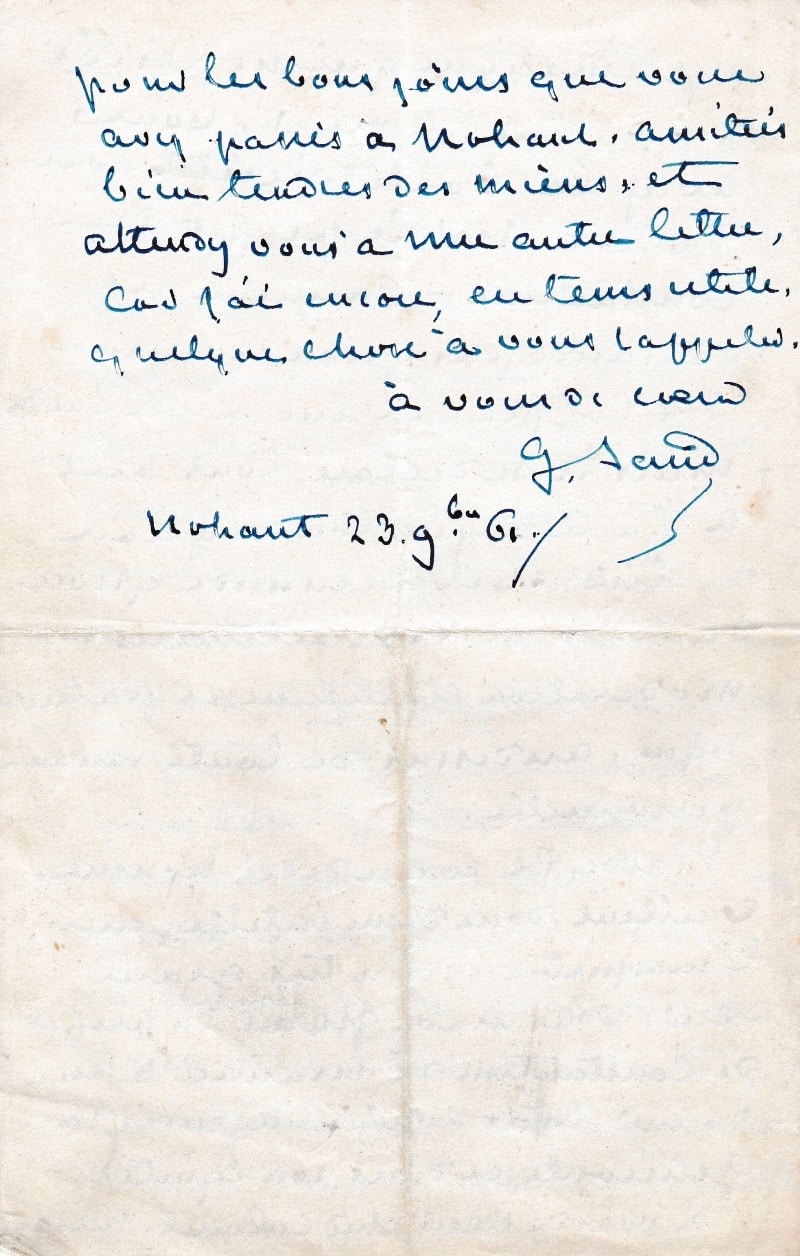 pour les bons jours que vous
avez passés à Nohant. amitiés
bien tendres des miens, et
attendez vous à une autre lettre,
car j'ai encore, en tems utile,
quelque chose à vous rappeler.
à vous de cœur
G. Sand
Nohant 23. 9bre 61.